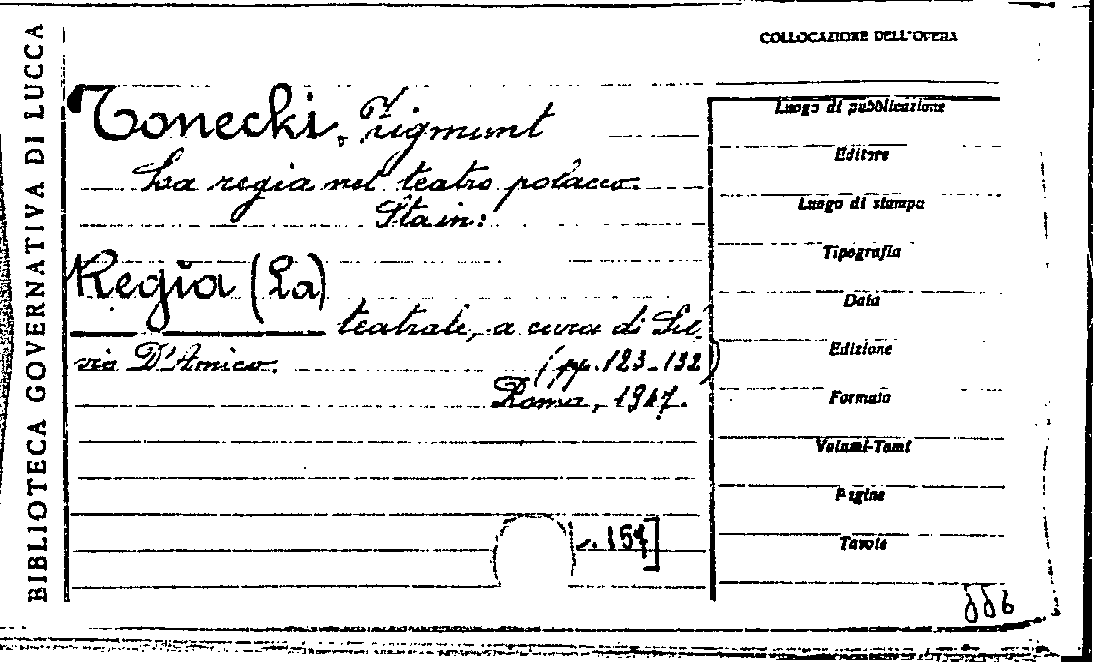 BIBLIOTECA GOVERNATIVA DI LUCCA
COLLOCAZIONE DELL'OPERA
Tonecki, Zigmunt
La regia nel teatro polacco.
Sta in:
Regia (La)
teatrale, a cura di Sil-
vio D'Amico.
(pp. 123-132)
Roma, 1947.
157]
Luogo di pubblicazione
Editore
Luogo di stampa
Tipografia
Data
Edizione
Formato
Volumi-Tomi
Pagine
Tavole